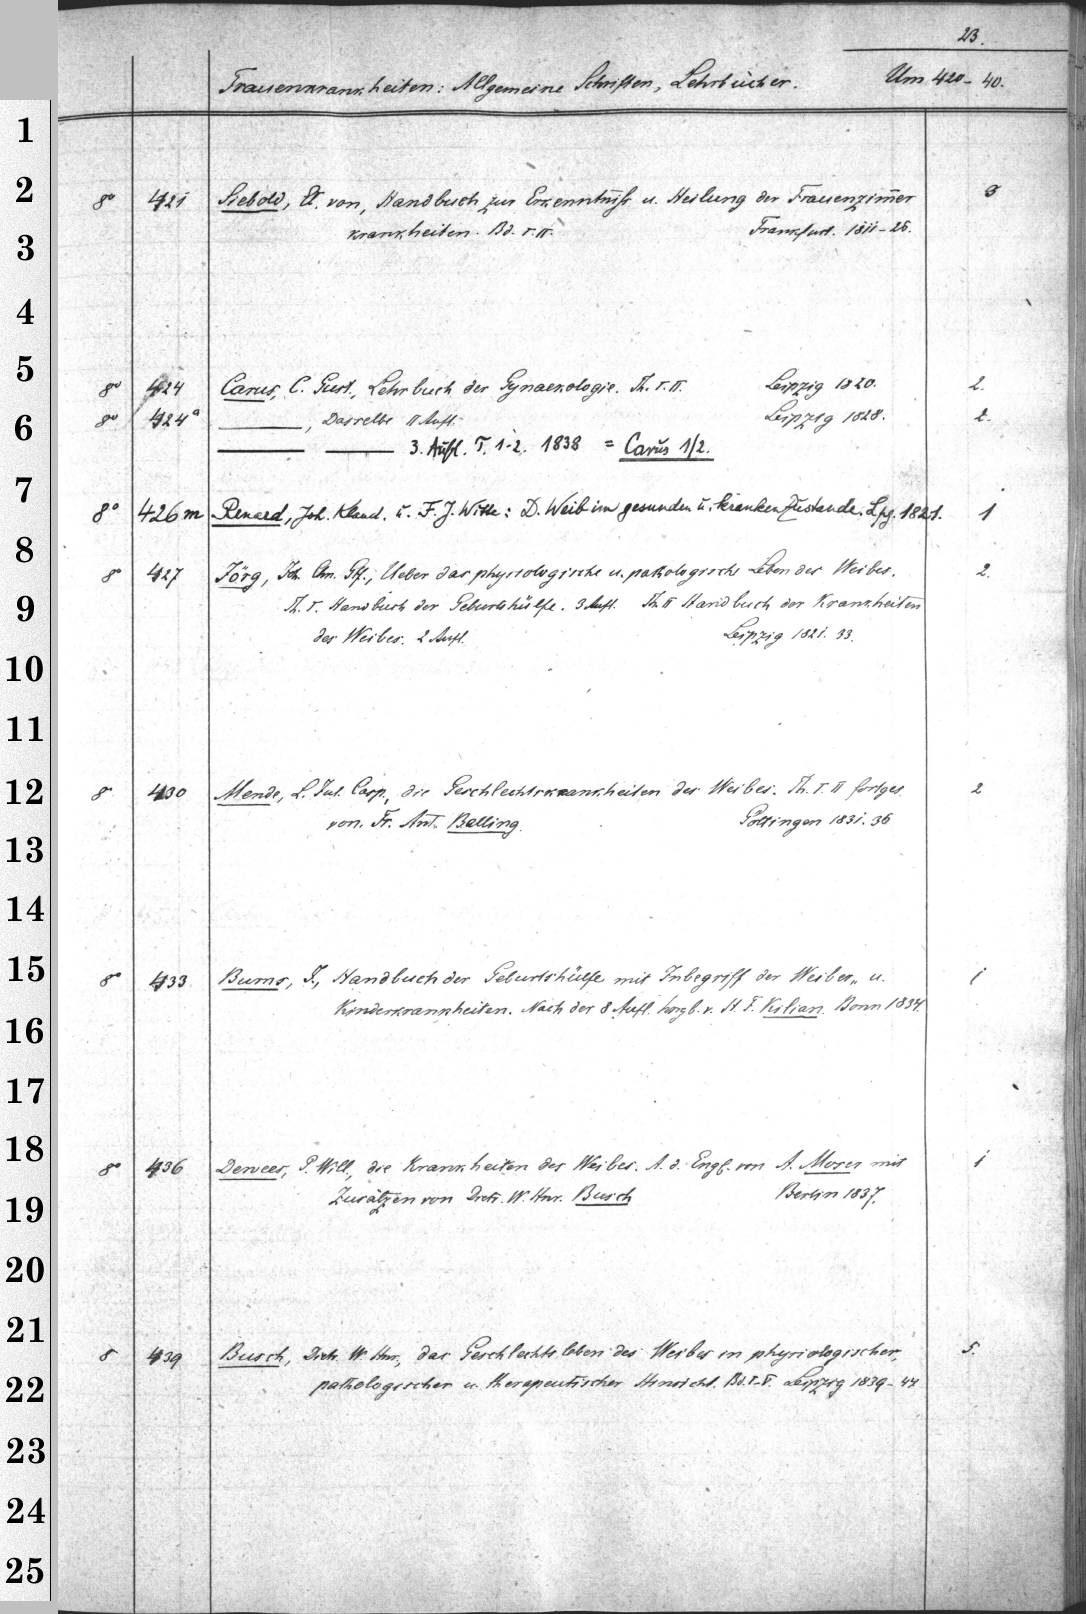 23.
Frauenkrankheiten: Allgemeine Schriften, Lehrbücher. Um 420-40.
8º 421 Siebold, El. von, Handbuch zur Erkenntniß u. Heilung der Frauenzim̅er 3
krankheiten. Bd. I.II. Frankfurt. 1811-26.
8º 424 Carus, C. Gust., Lehrbuch der Gynaekologie. Th. I.II. Leipzig 1820. 2.
8º 424ª ———, Dasselbe II Aufl. Leipzig 1828. 2.
——— ——— 3. Aufl. T. 1-2. 1838 = Carus 1/2.
8º 426m Renard, Joh. Klaud. u. F. J. Witte: D. Weib im gesunden u. kranken Zustande. Lpg. 1821. 1
8º 427 Jörg, Joh. Chn. Gtf., Ueber das physiologische u. pathologische Leben des Weibes. 2.
Th. I. Handbuch der Geburtshülfe. 3 Aufl. Th. II Handbuch der Krankheiten
des Weibes. 2 Aufl. Leipzig 1821. 33.
8º 430 Mende, L. Jul. Casp., die Geschlechtskrankheiten des Weibes. Th. I. II fortges. 2
von. Fr. Ant. Balling. Göttingen 1831. 36
8º 433 Burns, J., Handbuch der Geburtshülfe mit Inbegriff der Weiber- u. 1
Kinderkrankheiten. Nach der 8 Aufl. hrsgb. v. H. F. Kilian. Bonn 1834.
8º 436 Dewees, P. Will., die Krankheiten des Weibes. A. d. Engl. von A. Moser mit 1
Zusätzen von Dietr. W. Hnr. Busch Berlin 1837.
8 439 Busch, Dietr. W. Hnr., das Geschlechtsleben des Weibes in physiologischer, 5.
pathologischer u. therapeutischer Hinsicht. Bd. I-V. Leipzig 1839-44
1
2
3
4
5
6
7
8
9
10
11
12
13
14
15
16
17
18
19
20
21
22
23
24
25